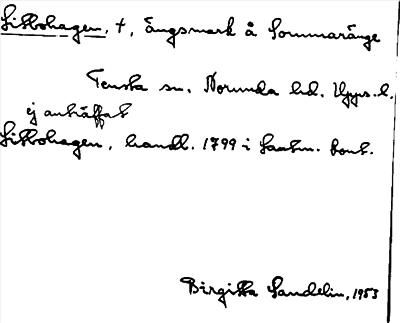 Sikbohagen, †, ängsmark å Sommaränge
Tensta sn. Norunda hd. Upps. l.
ej anträffat
Sikbohagen, handl. 1799 i Lantm. kont.
Birgitta Sandelin, 1953